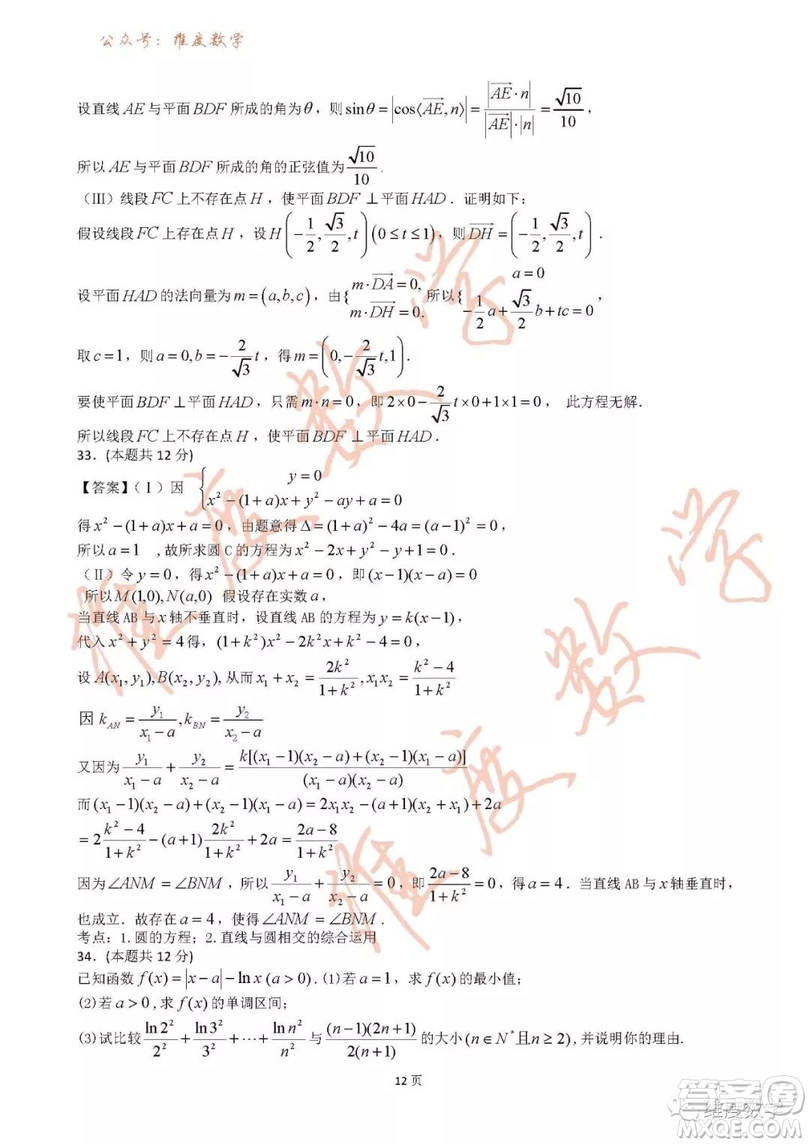 公众号：维度数学
设直线 AE 与平面 BDF 所成的角为 θ，则 sinθ = |cos⟨AE→, n⟩| = |AE→·n| / (|AE→|·|n|) = √10/10，
所以 AE 与平面 BDF 所成的角的正弦值为 √10/10.
(Ⅲ) 线段 FC 上不存在点 H，使平面 BDF ⊥ 平面 HAD．证明如下：
假设线段 FC 上存在点 H，设 H(-1/2, √3/2, t)(0≤t≤1)，则 DH→ = (-1/2, √3/2, t)．
设平面 HAD 的法向量为 m=(a,b,c)，由{ m·DA→=0, m·DH→=0. 所以{ a=0 -1/2 a+√3/2 b+tc=0，
取 c=1，则 a=0,b=-2/√3 t，得 m=(0,-2/√3 t,1)．
要使平面 BDF ⊥ 平面 HAD，只需 m·n=0，即 2×0-2/√3 t×0+1×1=0， 此方程无解．
所以线段 FC 上不存在点 H，使平面 BDF ⊥ 平面 HAD．
33．(本题共 12 分)
【答案】(Ⅰ) 因 { y=0 x²-(1+a)x+y²-ay+a=0
得 x²-(1+a)x+a=0，由题意得 Δ=(1+a)²-4a=(a-1)²=0，
所以 a=1 ,故所求圆 C 的方程为 x²-2x+y²-y+1=0．
(Ⅱ) 令 y=0，得 x²-(1+a)x+a=0，即 (x-1)(x-a)=0
所以 M(1,0), N(a,0) 假设存在实数 a，
当直线 AB 与 x 轴不垂直时，设直线 AB 的方程为 y=k(x-1)，
代入 x²+y²=4 得，(1+k²)x²-2k²x+k²-4=0，
设 A(x₁,y₁), B(x₂,y₂), 从而 x₁+x₂=2k²/(1+k²), x₁x₂=(k²-4)/(1+k²)
因 k_AN=y₁/(x₁-a), k_BN=y₂/(x₂-a)
又因为 y₁/(x₁-a)+y₂/(x₂-a)=k[(x₁-1)(x₂-a)+(x₂-1)(x₁-a)]/((x₁-a)(x₂-a))
而 (x₁-1)(x₂-a)+(x₂-1)(x₁-a)=2x₁x₂-(a+1)(x₂+x₁)+2a
=2(k²-4)/(1+k²)-(a+1)2k²/(1+k²)+2a=(2a-8)/(1+k²)
因为∠ANM=∠BNM，所以 y₁/(x₁-a)+y₂/(x₂-a)=0，即 (2a-8)/(1+k²)=0，得 a=4．当直线 AB 与 x 轴垂直时，
也成立．故存在 a=4，使得∠ANM=∠BNM．
考点：1.圆的方程；2.直线与圆相交的综合运用
34．(本题共 12 分)
已知函数 f(x)=|x-a|-ln x (a>0). (1)若 a=1，求 f(x) 的最小值；
(2)若 a>0, 求 f(x) 的单调区间；
(3)试比较 ln2²/2²+ln3²/3²+⋯+ln n²/n² 与 (n-1)(2n+1)/(2(n+1)) 的大小 (n∈N*且n≥2), 并说明你的理由.
12 页
维度数学
维度数学
答案圈
维度数学
MXQE.COM